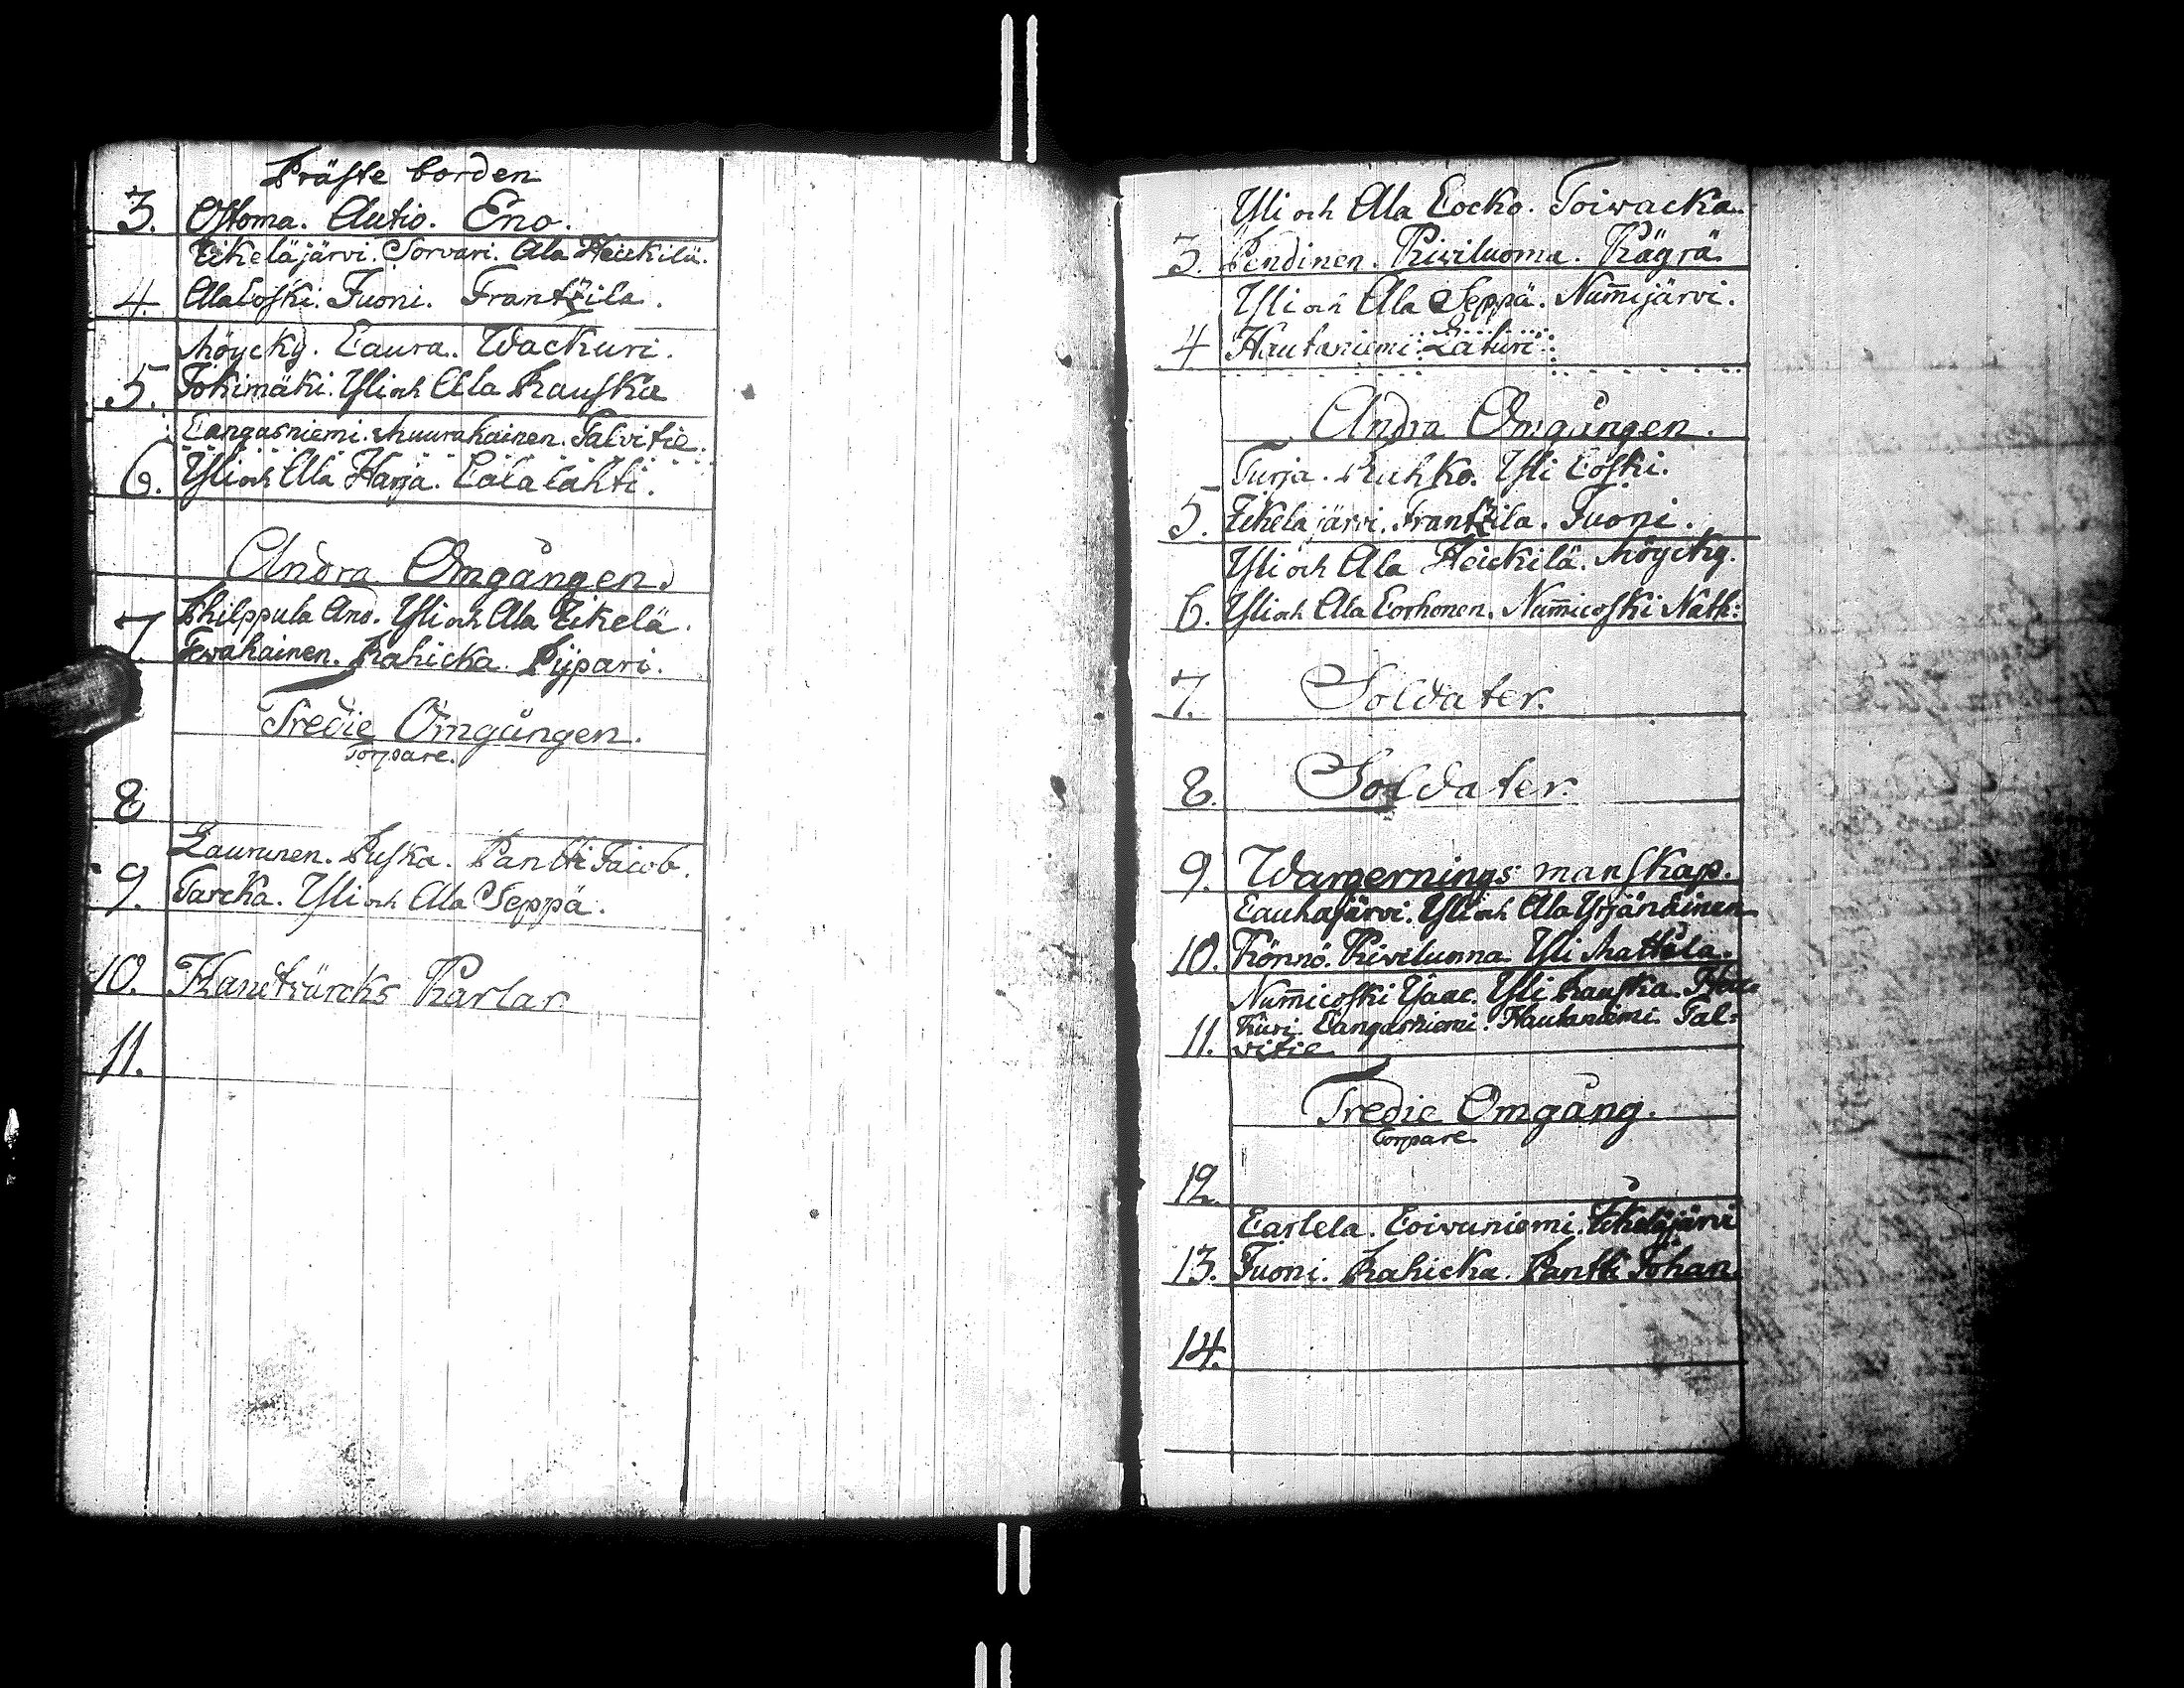 Präste borden
3. Ostoma. Autio. Eno.
Tikeläjärvi. Sorvari. Ala Heickilä.
4. Ala Coski. Juoni. Frantzila.
Möycky. Laura. Wackuri.
5. Jokimäki. Yli och Ala Rauska
Cangasniemi. Muurahainen. Talvitie.
6. Yli och Ala Harja. Calalahti.
Andra Omgången.
7. Philppula And. Yli och Ala Tikelä.
Tervahainen. Rahicka. Pijpari.
Tredie Omgången.
Torpare.
8
Laurunen. Puska. Pantti Jacob.
9. Tarcka. Yli och Ala Seppä.
10. Handtvärcks Karlar
11.
Yli och Ala Cocko. Toiwacka.
3. Pendinen. Kiviluoma. Kägrä
Yli och Ala Seppä. Num̄ijärvi.
4 Hautaniemi. Laturi.
Andra Omgången.
Turja. Ruhko. Yli Coski.
5. Tikeläjärvi. Frantzila. Juoni.
Yli och Ala Heickilä. Möycky.
6. Yli och Ala Corhonen. Num̄icoski Math:
7. Soldater.
8. Soldater.
9. Wargernings manskap.
Cauhajärvi. Yli och Ala Yrjänäinen
10. Könnö. Kiviluoma. Yli Mattila.
Num̄icoski Isaac. Yli Rauska. Hau-
11. Kuri. Cangasniemi. Hautaniemi. Tal-
vitie
Tredie Omgång.
Torpare
12.
Castela. Coivuniemi. Tikeläjärvi
13. Juoni. Rahicka. Pantti Johan.
14.